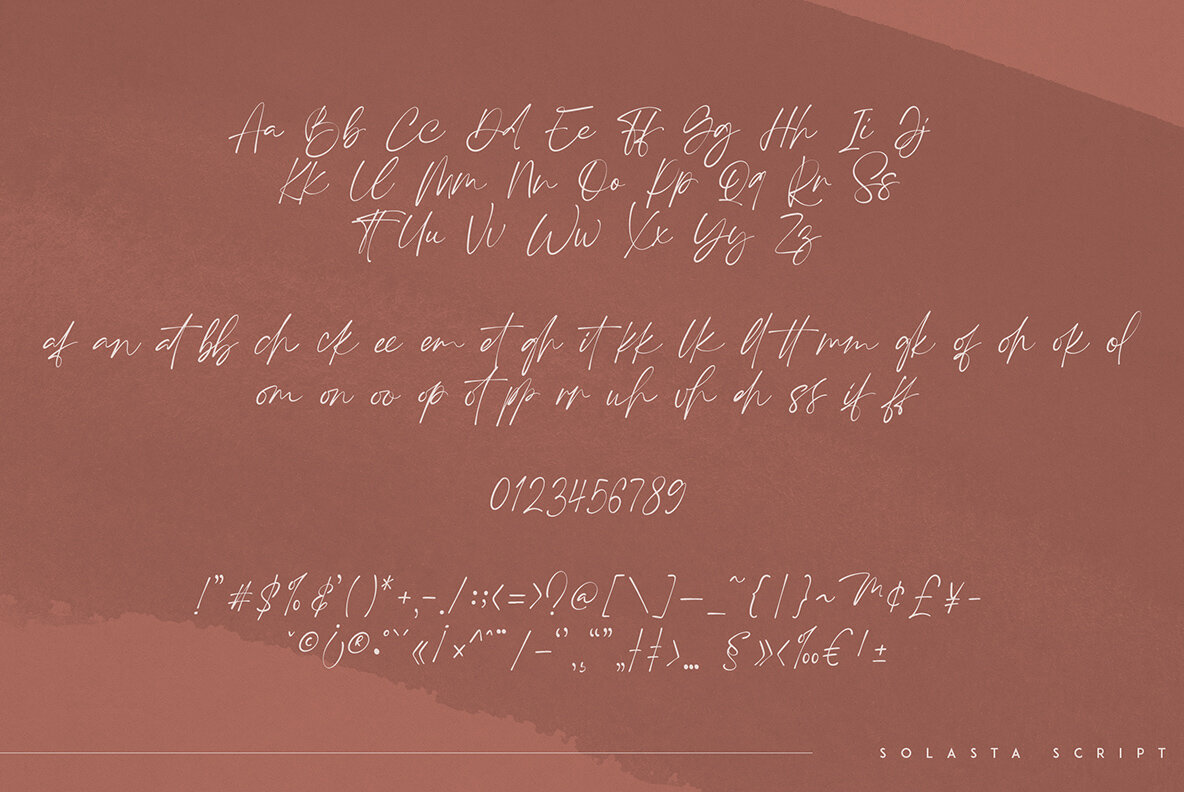 Aa Bb Cc Dd Ee Ff Gg Hh Ii Jj
Kk Ll Mm Nn Oo Pp Qq Rr Ss
Tt Uu Vv Ww Xx Yy Zz
af an at bb ch ck ee em et gh it kk lk ll tt mm gk of oh ok ol
om on oo op ot pp rr uh vh eh ss if ff
0123456789
!"#$%&'()*+,-./:;<=>?@[\]—_~{|}~™¢£¥-
ˇ©j®•°ˇ˘«¡×^ˆ¨/–‘’‚¸“”„†‡›…§»‹‰€|±
SOLASTA SCRIPT